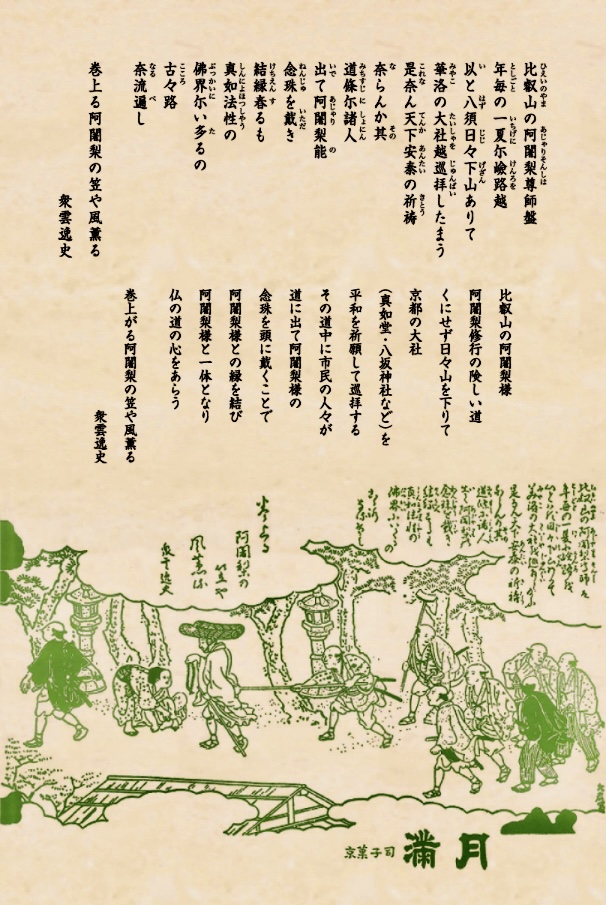 比叡山の阿闍梨尊師盤
年毎の一夏尓嶮路越
以と八須日々下山ありて
華洛の大社越巡拝したまう
是奈ん天下安泰の祈祷
奈らんか其
道條尓諸人
出て阿闍梨能
念珠を戴き
結縁春るも
真如法性の
佛界尓い多るの
古々路
奈流遍し
巻上る阿闍梨の笠や風薫る
衆雲逸史
比叡山の阿闍梨様
阿闍梨修行の険しい道
くにせず日々山を下りて
京都の大社
(真如堂・八坂神社など)を
平和を祈願して巡拝する
その道中に市民の人々が
道に出て阿闍梨様の
念珠を頭に戴くことで
阿闍梨様との縁を結び
阿闍梨様と一体となり
仏の道の心をあらう
巻上がる阿闍梨の笠や風薫る
衆雲逸史
阿闍梨の
笠や
風薫る
京菓子司 満月